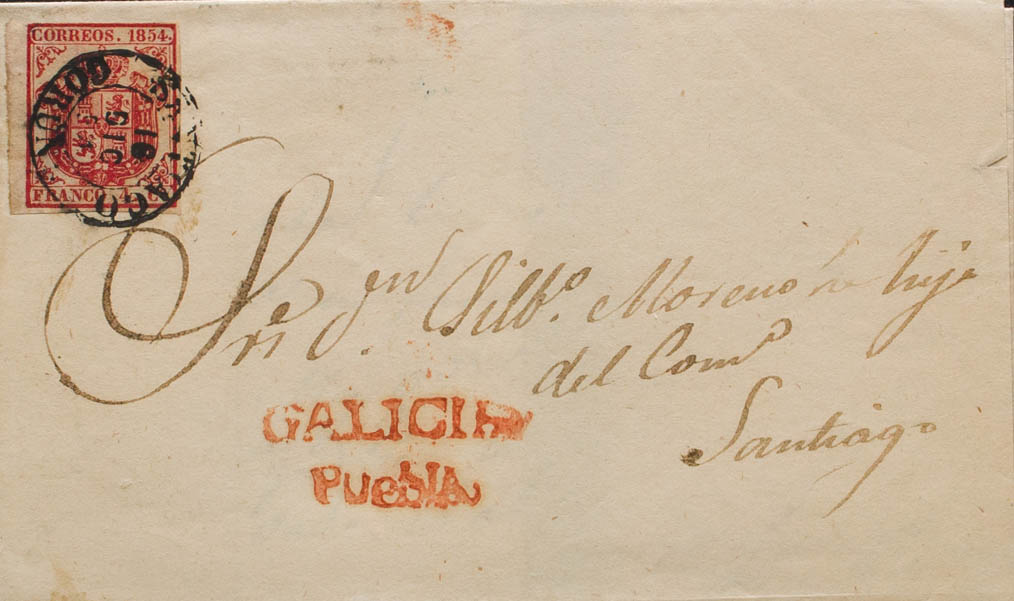 CORREOS. 1854.
FRANCO. 4. C
CORUÑ
16
DIC
Sres Dn. Silbo. Moreno he hijo
del Como
Santiago
GALICIA
PUEBLA